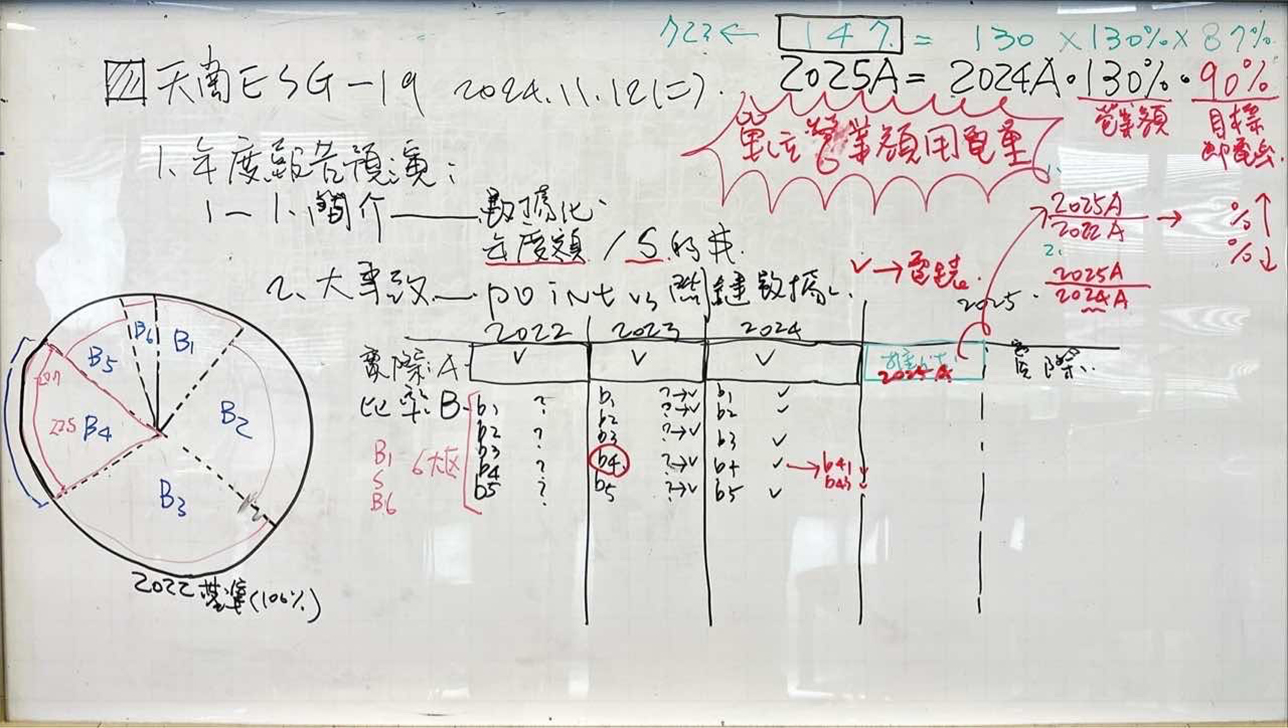 ← 147. = 130 × 130% × 87%
2025A = 2024A · 130% · 90%
營業額 目標
天南ESG-19 2024.11.12(二).
單位營業額用電量
1. 年度報告預演:
1-1. 簡介 —— 數據化
年度額 / S
2025A / 2022A → %↑
%↓
2. 2025A / 2024A
2. 大事 — point vs 關鍵數據.
✓ → 電錶.
2022 2023 2024 2025.
實際: A ✓ ✓ ✓ 2025A 實際
比率: B b1 ? b1 ?→✓ b1 ✓
b2 ? b2 ?→✓ b2 ✓
b3 b3 ?→✓ b3 ✓
b4 ? b4 ?→✓ b4 ✓ → b41 ✓
b43 ✓
b5 ? b5 ?→✓ b5 ✓
B1 S B6 6大区
B6 B1
B5
B2
225 B4
B3
2022基準(100%)